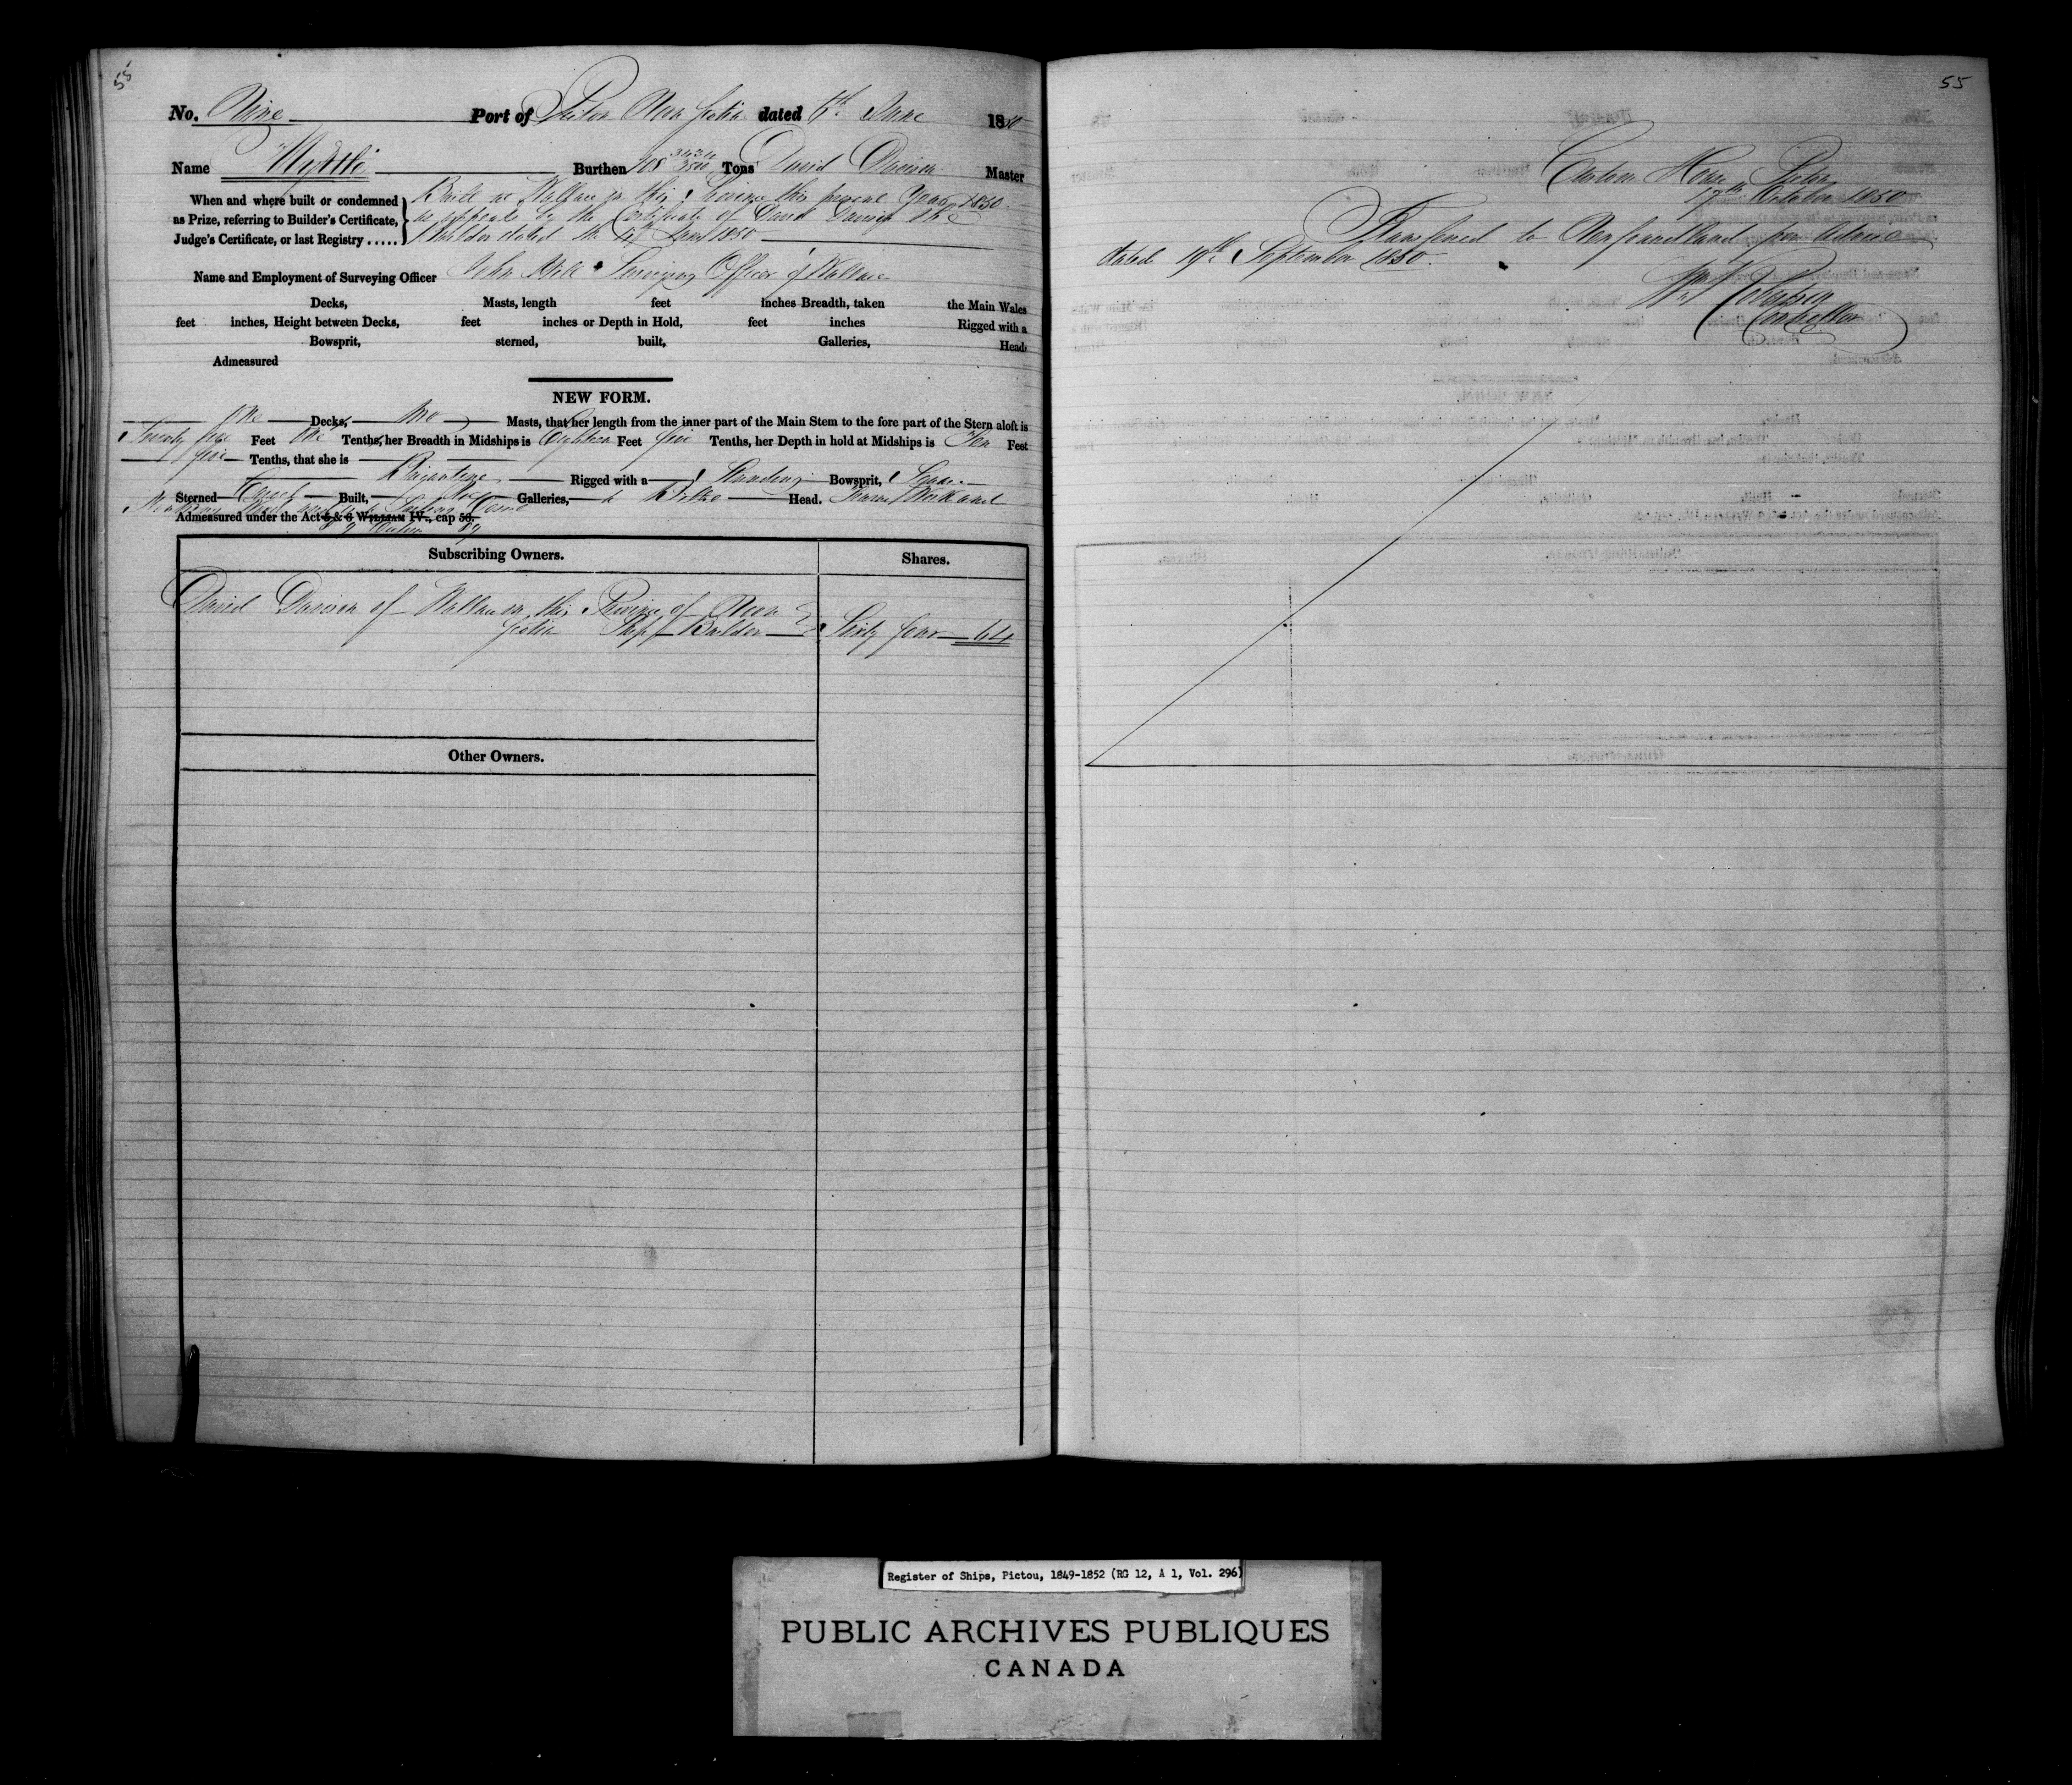 55
No. Nine Port of Pictou Nova Scotia dated 6th June 1850
Name "Myrtle" Burthen 108 3434/3500 Tons David Davison Master
When and where built or condemned
as Prize, referring to Builder's Certificate,
Judge's Certificate, or last Registry .....
Built at Wallace in this Province this present Year 1850
as appears by the Certificate of David Davison the
Builder dated the June 1850
Name and Employment of Surveying Officer John Surveying Officer of Wallace
Decks, Masts, length feet inches Breadth, taken the Main Wales
feet inches, Height between Decks, feet inches or Depth in Hold, feet inches Rigged with a
Bowsprit, sterned, built, Galleries, Head.
Admeasured
NEW FORM.
One Decks, two Masts, that her length from the inner part of the Main Stem to the fore part of the Stern aloft is
Seventy five Feet One Tenths, her Breadth in Midships is Eighteen Feet five Tenths, her Depth in hold at Midships is Ten Feet
five Tenths, that she is
Brigantine Rigged with a Standing Bowsprit, Square
Sterned Carvel Built, No Galleries, a Billet Head.
Admeasured under the Act 5 & 6 WILLIAM IV., cap 56.
Subscribing Owners. Shares.
David Davison of Wallace in this Province of Nova
Scotia Ship Builder Sixty four 64
Other Owners.
55
Custom House Pictou
17th October 1850
Transferred to Newfoundland per advice
dated 19th September 1850.
Wm Robertson
Controller
Register of Ships, Pictou, 1849-1852 (RG 12, A 1, Vol. 296)
PUBLIC ARCHIVES PUBLIQUES
CANADA